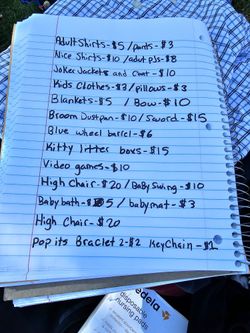 Adult Shirts-$5 / pants-$3
Nice Shirts-$10 / adult pJs-$8
Joker Jackets and Coat-$10
Kids Clothes-$3 / pillows-$3
Blankets-$5 / Bow-$10
Broom Dustpan-$10 / Sword-$15
Blue wheel barrel-$6
Kitty litter boxes-$15
Video games-$10
High Chair-$20 / BaBy Swing-$10
Baby bath-$5 / baby mat-$3
High Chair-$20
pop its Braclet 2-$2 KeyChain-$1
medela
disposable
nursing pads